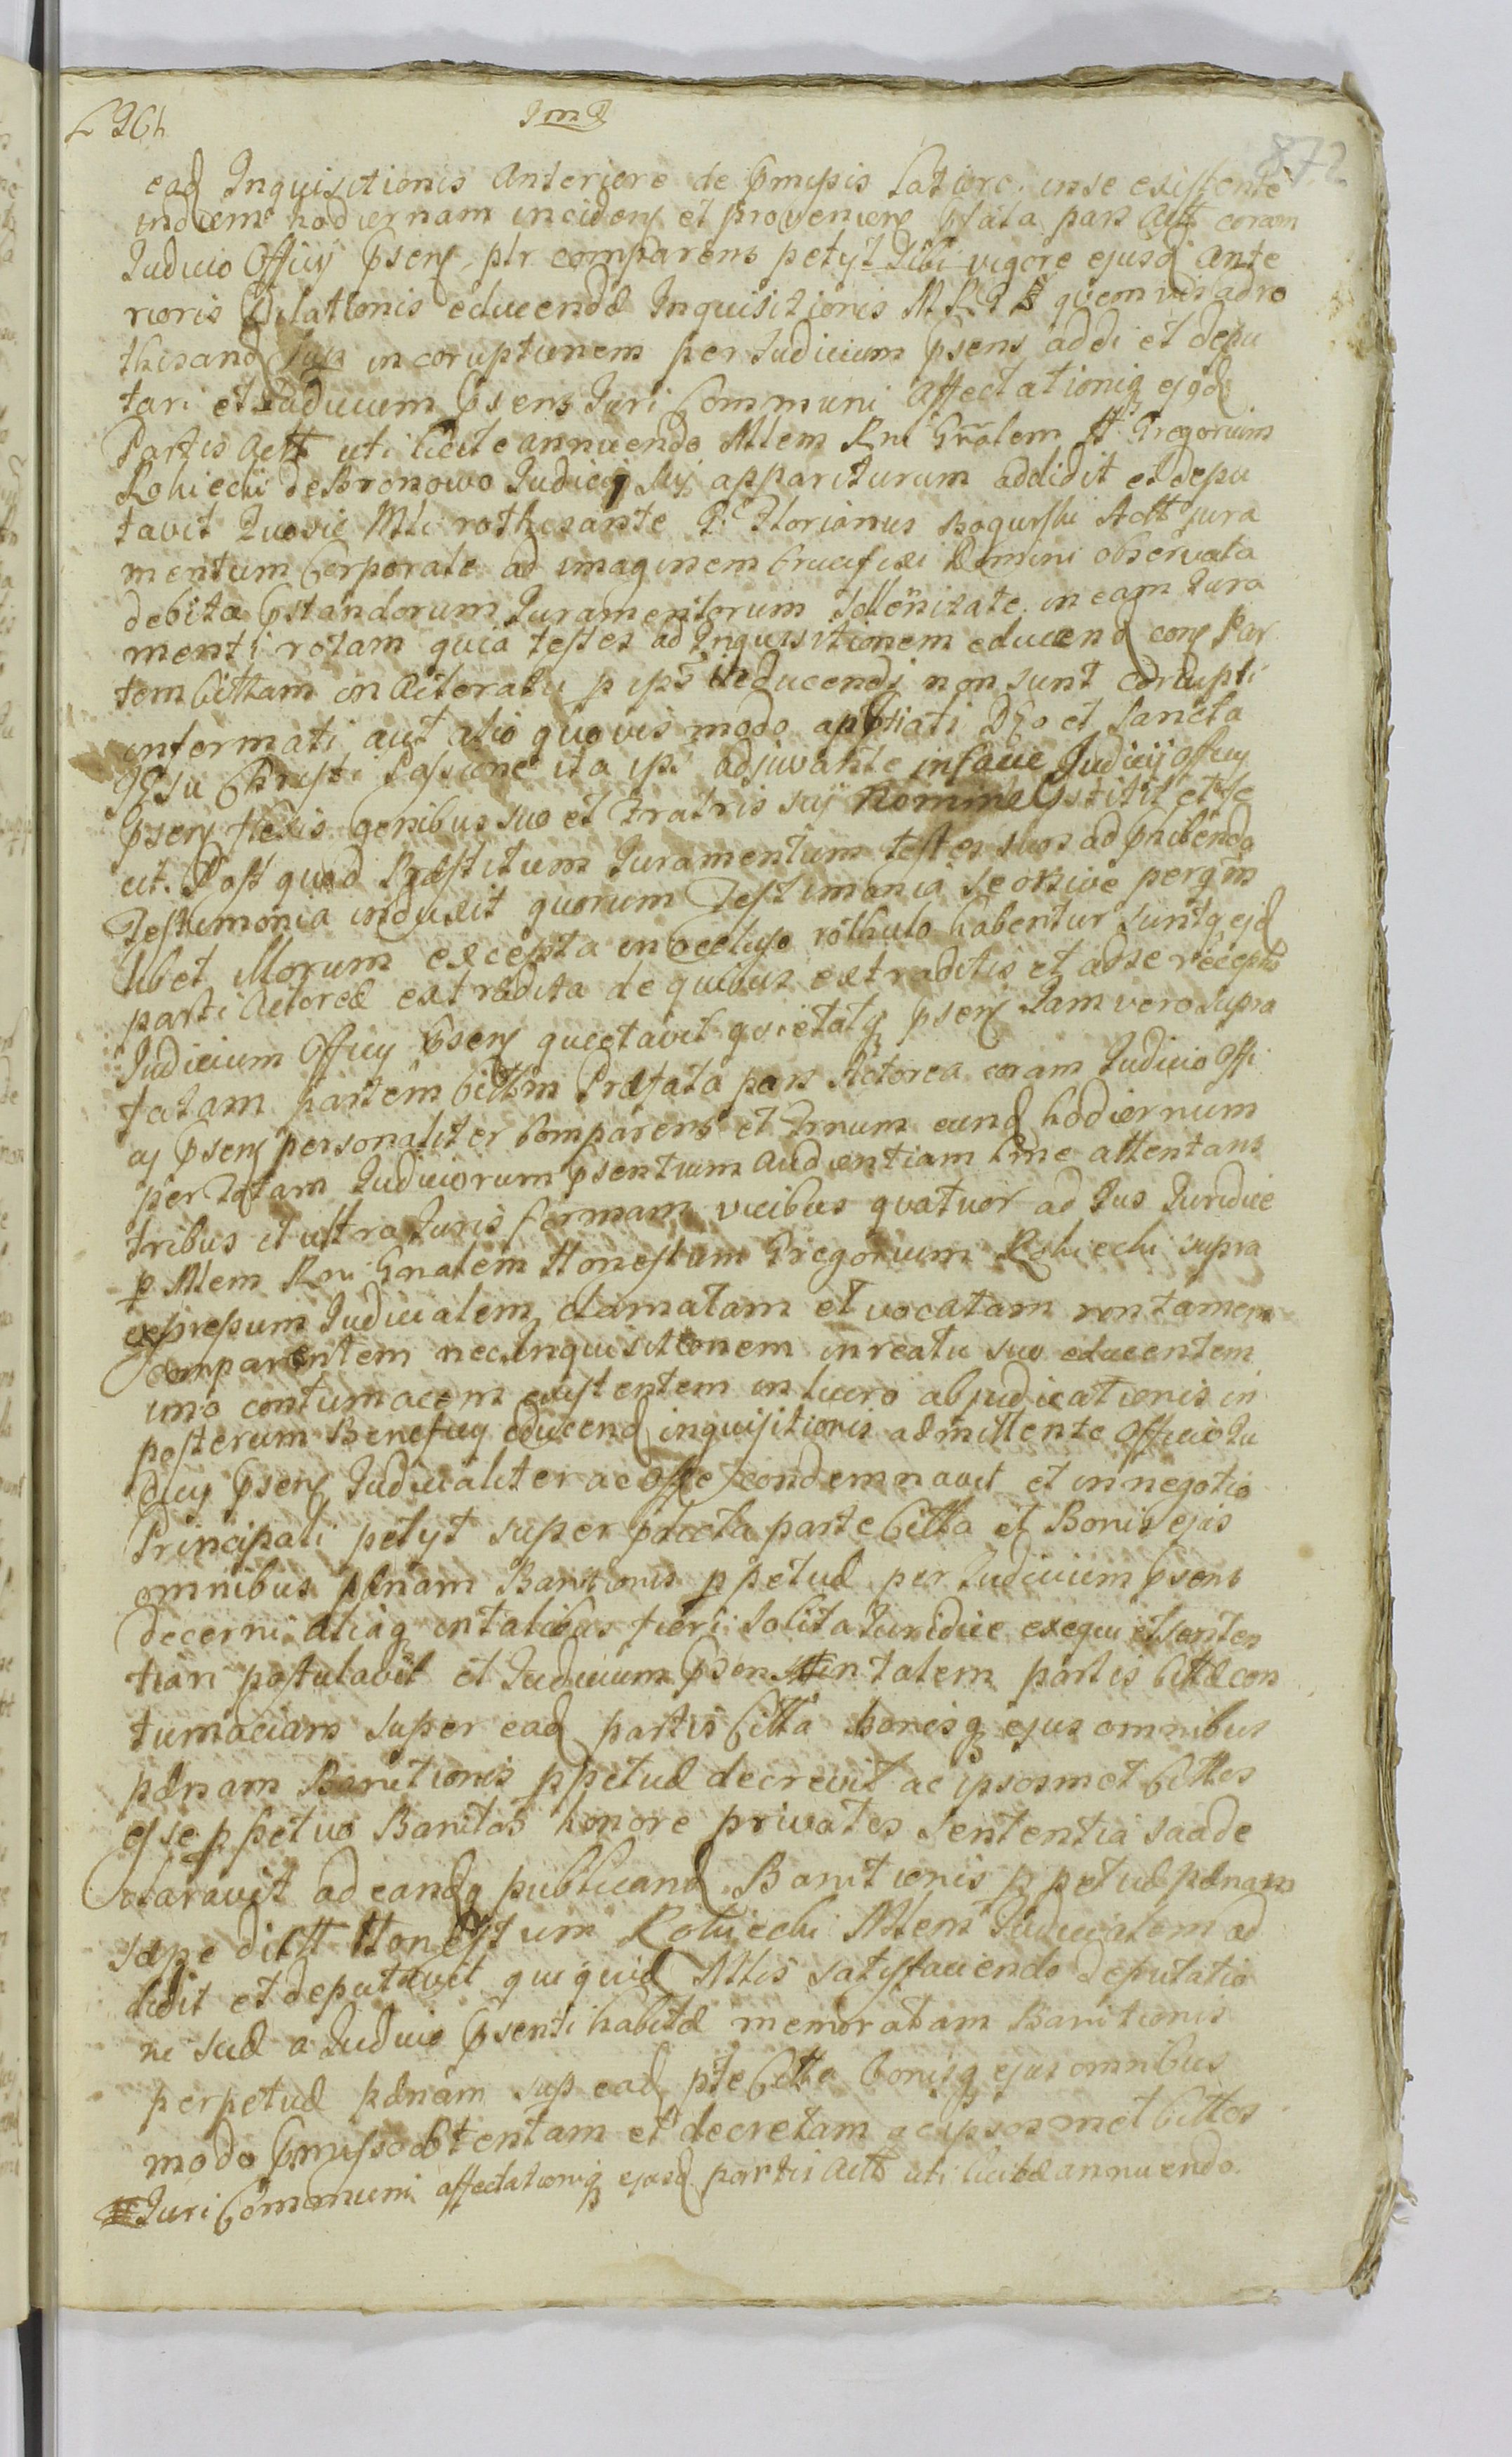 872
ead Inquisitionis Anteriore de Pmissis Latiore inse existente
indiem hodiernam inciden et provenien Pfata pars Actt coram
Iudicio Officij Psen plr comparens petijt Sibi vigore ejusd Ante
rioris Dilationis educendæ Inquisitionis M R G quemvis adro
thisand Iur in coruptionem per Iudicium Psens addi et depu
tari et Iudicium Psens Iuri Communi Affectationiq ejgd
Partis Actt uti licitæ annuendo Mlem Rni Gnalem H Gregorium
Rohiecki de Bronowo Iudicij sui appariturum addidit et depu
tavit Quo sic Mli rothisante G. Florianus Bogurski Actt jura
mentum Corporale ad imaginem Crucifixi Domini observata
debita Pstandorum Iuramentorum Sollenitate in eam Iura
menti rotam quia testes ad Inquisitionem educend con Par
tem Cittam in Actoratu p ips inducendi non sunt corrupti
informati aut alio quovis modo aptiati Deo et Sancta
IESu Christi Passione ita ips adjuvante infacie Iudicij Officij
Psen flexis genibus suo et Fratris sui Nomine Pstitit et fe
cit. Post quod Præstitum Iuramentum testes suos ad phibenda
Testimonia induxit quorum Testimonia seorsive pergm
libet Illorum excepta in occluso rothulo habentur suntq ejd
parti Actoreæ extradita de quibus extraditis et abse receptis
Iudicium Officij Psens quietavit quietatq psen Iam vero supra
fatam Partem Cittam Præfata pars Actorea coram Iudicio Offi
cij Psen personaliter Comparens et Trnum eund hodiernum
per totam Iudiciorum Psentium Audientiam Lime attentans
tribus et ultra Iuris formam vicibus quatuor ad Ius Iuridice
p Mlem Rni Gnalem Honestum Gregorium Rohiecki supra
expressum Iudicialem clamatam et vocatam non tamen
Comparentem nec Inquisitionem in reatu suo educentem
imo contumacem existentem in lucro abjudicationis in
posterum Beneficij educend inquisitionis admittente Officio Iu
dicij Psen Iudicialiter ac Offe condemnavit et in negotio
Principali petijt super pdicta parte Citta et Bonis ejus
omnibus pænam Banitionis ppetuæ per Iudicium Psens
decerni Aliaq in talibus fieri Solita Iuridice exequi et senten
tiari postulavit et Iudicium Psens ob talem partis Cittæ con
tumaciam super ead partis Citta bonisq ejus omnibus
pænam Banitionis ppetuæ decrevit ac ipsosmet Cittos
esse ppetuo Banitos honore privatos Sententia sua de
claravit ad eandq publicand Banitionis ppetuæ pænam
sæpe dictt Honestum Rohiecki Mlem Iudicialem ad
didit et deputavit qui quid Mlis satisfaciendo deputatio
ni suæ a Iudicio Psenti habitæ memoratam Banitionis
perpetuæ pænam sup ead pte Citta bonisq ejus omnibus
modo Pmisso obtentam et decretam ac ipsosmet Cittos
Iuri Communi affectationiq ejusd partis Actt uti licitæ annuendo.